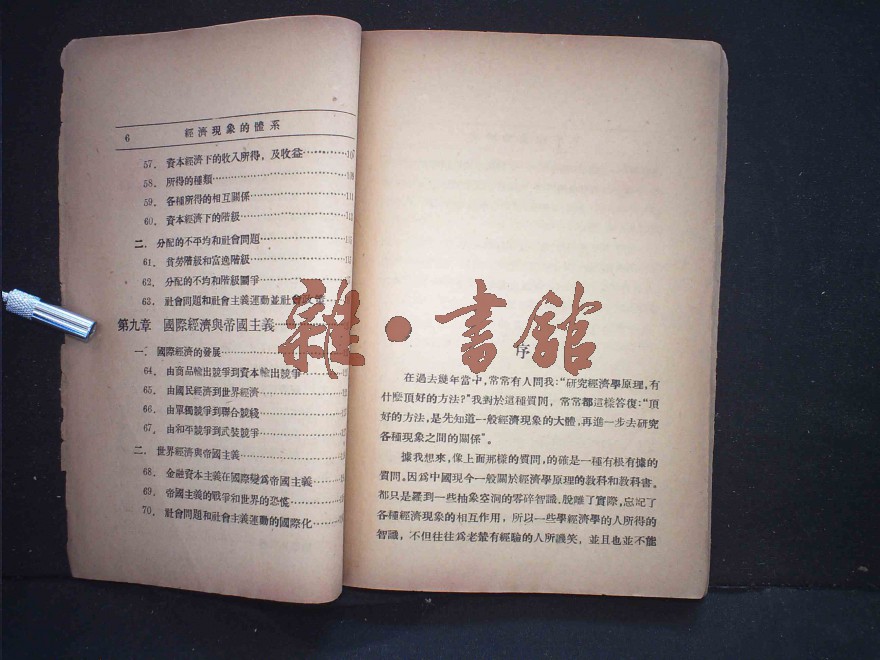 6 經濟現象的體系
57. 資本經濟下的收入所得,及收益……107
58. 所得的種類……
59. 各種所得的相互關係……
60. 資本經濟下的階級……
二. 分配的不平均和社會問題……
61. 貧勞階級和富逸階級……
62. 分配的不均和階級鬭爭……
63. 社會問題和社會主義運動並社會政策……
第九章 國際經濟與帝國主義……
一. 國際經濟的發展……
64. 由商品輸出競爭到資本輸出競爭……
65. 由國民經濟到世界經濟……
66. 由單獨競爭到聯合競綫……
67. 由和平競爭到武裝競爭……
二. 世界經濟與帝國主義……
68. 金融資本主義在國際變爲帝國主義……
69. 帝國主義的戰爭和世界的恐慌……
70. 社會問題和社會主義運動的國際化……
雜·書館
序
在過去幾年當中,常常有人問我:“研究經濟學原理,有
什麼頂好的方法?”我對於這種質問,常常都這樣答復:“頂
好的方法,是先知道一般經濟現象的大體,再進一步去研究
各種現象之間的關係”。
據我想來,像上面那樣的質問,的確是一種有根有據的
質問。因爲中國現今一般關於經濟學原理的教科和教科書。
都只是羅到一些抽象空洞的零碎智識,脫離了實際,忘記了
各種經濟現象的相互作用,所以一些學經濟學的人所得的
智識,不但往往爲老輩有經驗的人所譏笑,並且也並不能